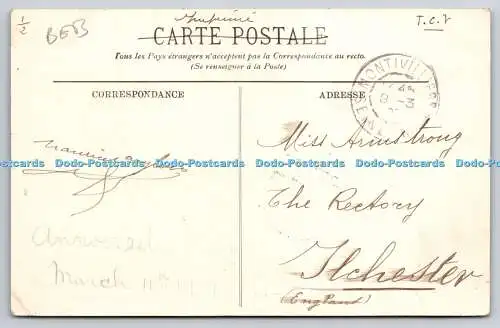 1/2
BEB
Imprimé
T.C.V
CARTE POSTALE
Tous les Pays étrangers n'acceptent pas la Correspondance au recto.
(Se renseigner à la Poste)
CORRESPONDANCE
ADRESSE
MONTIVILLIERS
Miss Armstrong
Dodo-Postcards Dodo-Postcards Dodo-Postcards Dodo-Postcards Dodo-Postcards Dodo-Postcards
The Rectory
Answered
March 11th
Ilchester
(England)